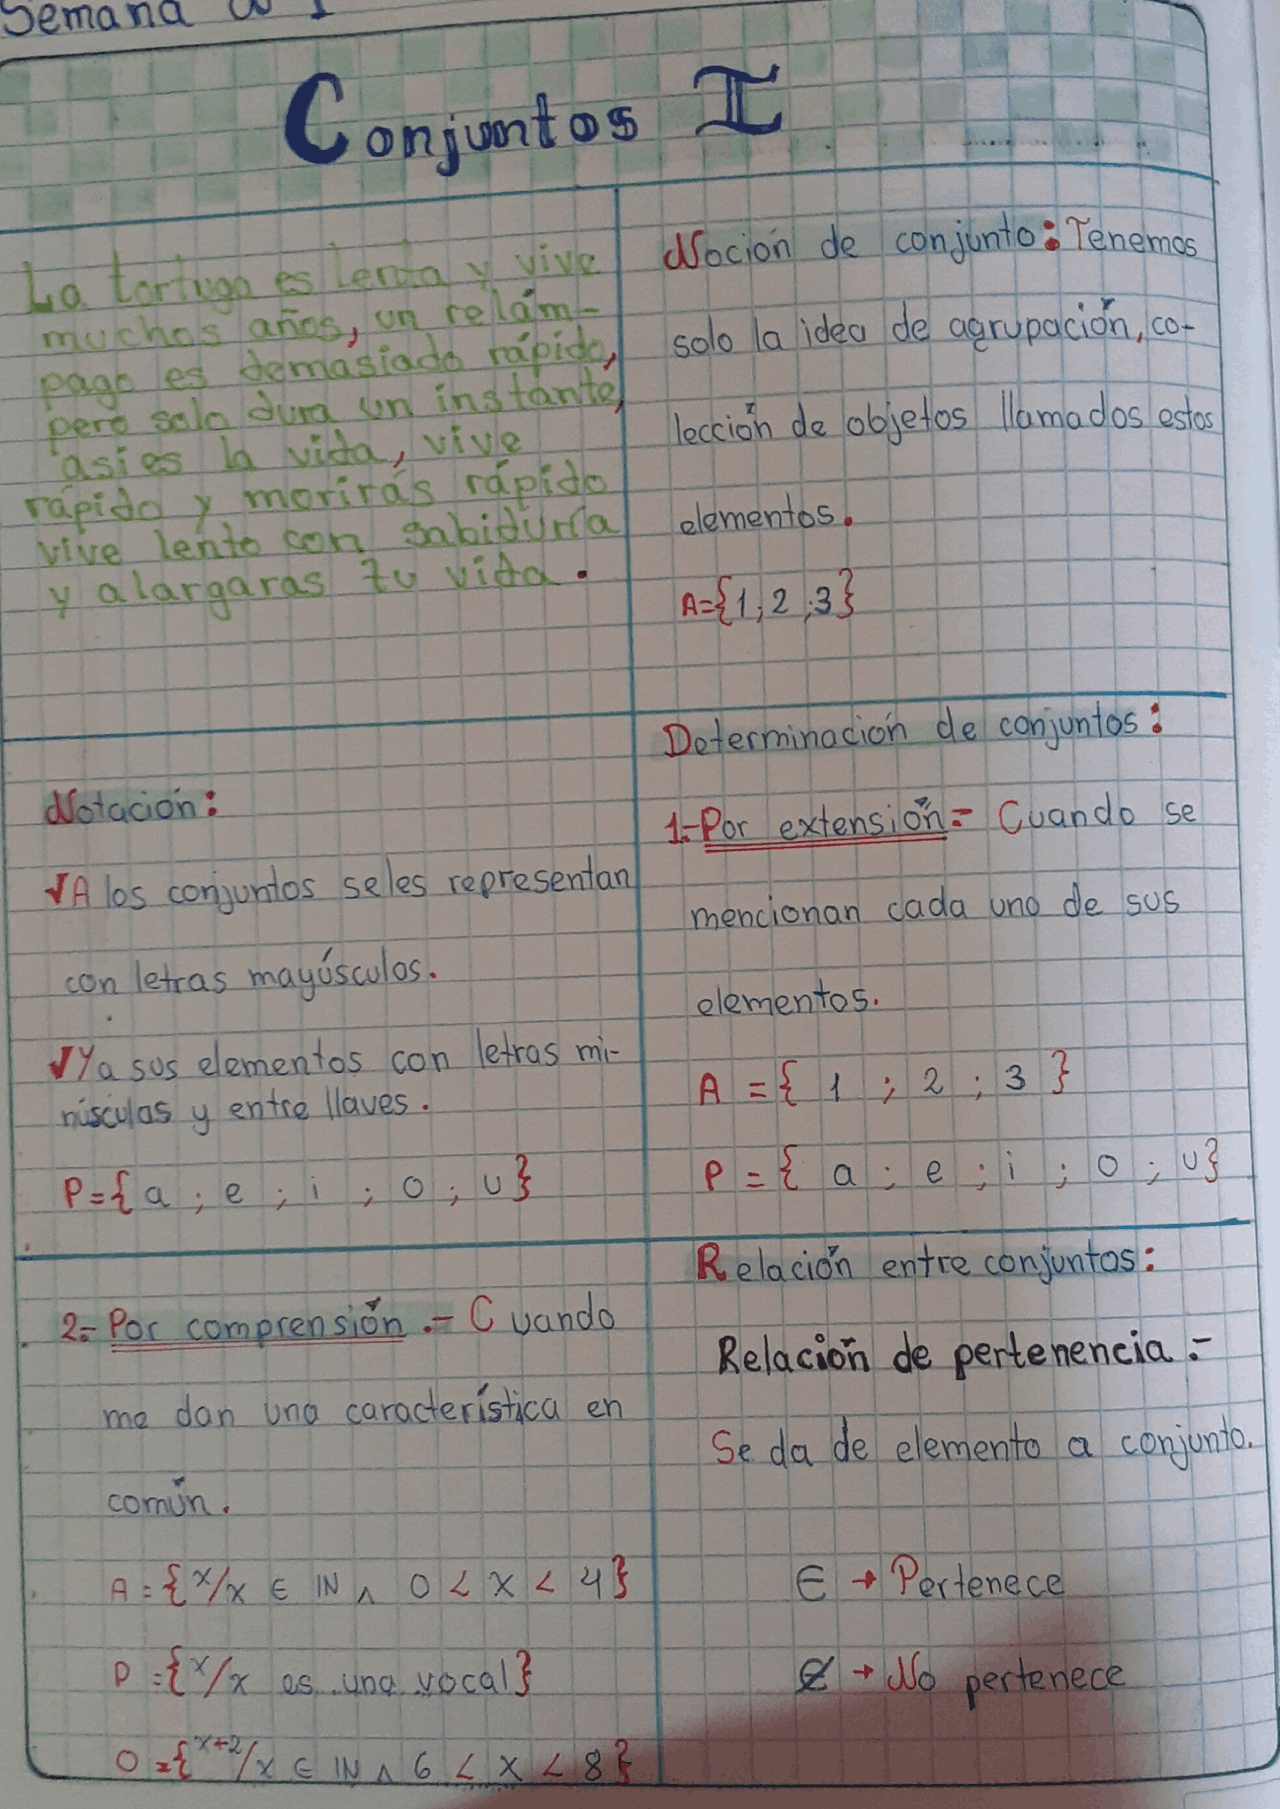 Semana N° 1
Conjuntos I
La tortuga es lenta y vive
muchos años, un relám-
pago es demasiado rápido,
pero solo dura un instante,
asi es la vida, vive
rápido y morirás rápido
vive lento con sabiduría
y alargaras tu vida.
Noción de conjunto: Tenemos
solo la idea de agrupación, co-
lección de objetos llamados estos
elementos.
A={1;2;3}
Notación:
√A los conjuntos seles representan
con letras mayúsculos.
√Y a sus elementos con letras mi-
núsculas y entre llaves.
P={a ; e ; i ; o ; u}
Determinación de conjuntos:
1.-Por extensión= Cuando se
mencionan cada uno de sus
elementos.
A = { 1 ; 2 ; 3 }
P = { a ; e ; i ; o ; u}
2.-Por comprensión .- Cuando
me dan una característica en
común.
A = {x/x ∈ IN ∧ 0 < x < 4}
P = {x/x es una vocal}
O = {x+2/x ∈ IN ∧ 6 < x < 8}
Relación entre conjuntos:
Relación de pertenencia .-
Se da de elemento a conjunto.
∈ → Pertenece
∉ → No pertenece